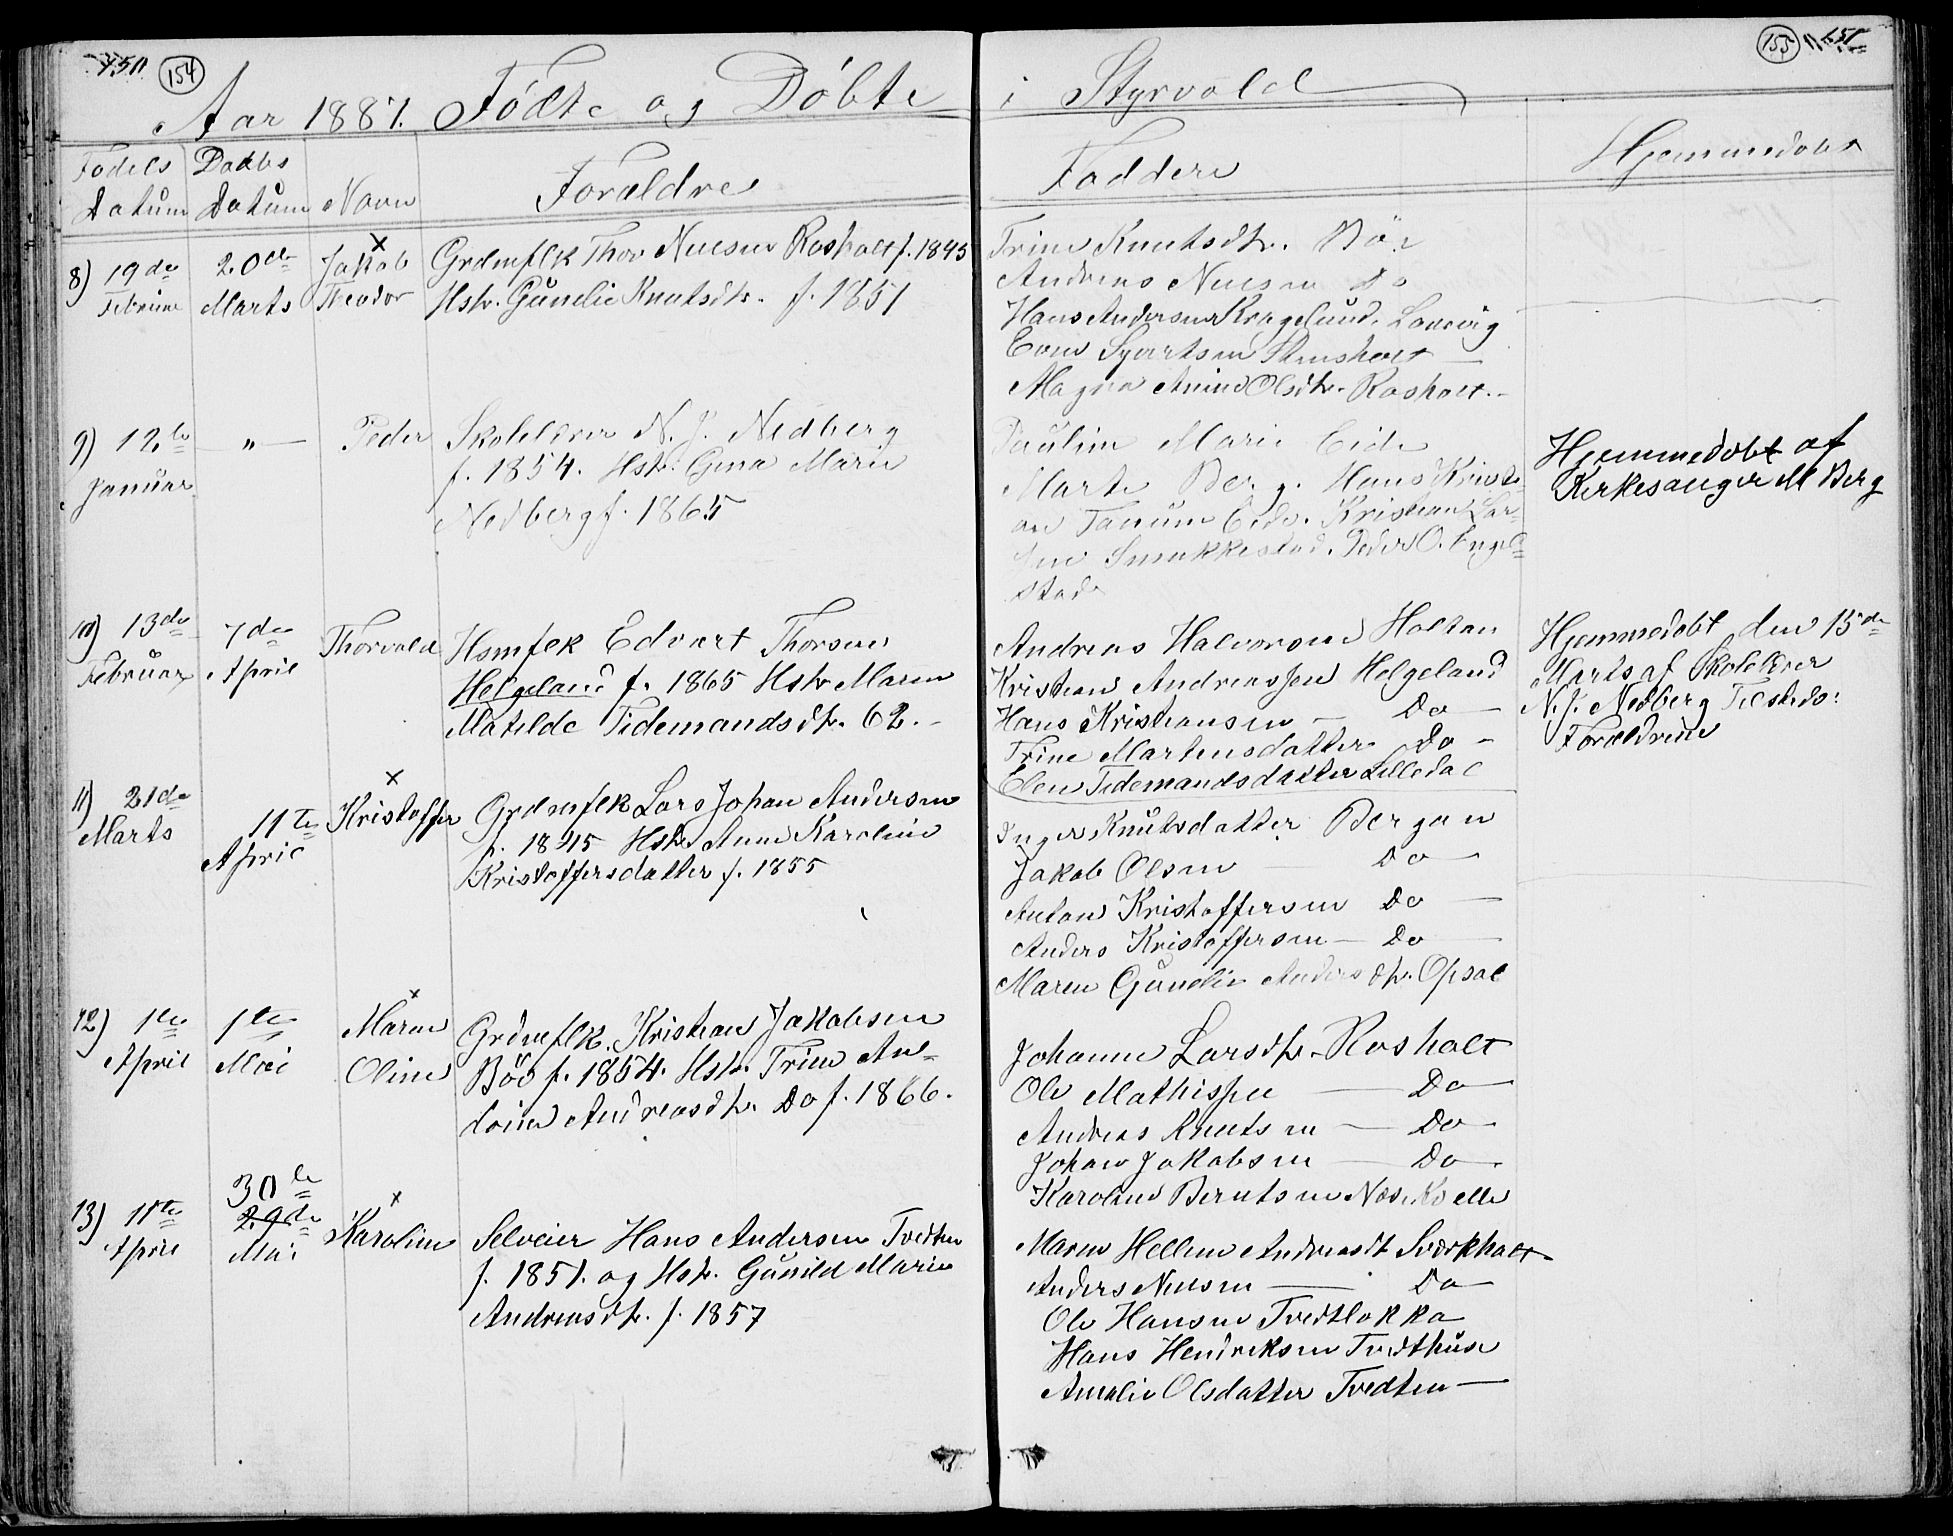 150 154
Aar 1887. Födte og Döbte
Födels Daabs
Datum Datum Navn Forældre
8) 19de 20de Jakob Grdmflk Thor Nielsen Rosholt f. 1845
Februar Marts Theodor Hstr. Gunelie Knutsdtr. f. 1851
9) 12te — „ — Peder Skolelærer N. J. Nedberg
Januar f. 1854. Hstr. Gina Marie
Nedberg f. 1865
10) 13de 7de Thorvald Hsmflk Edvart Thorsen
Februar April Helgeland f. 1865 Hstr Maren
Matilde Tidemandsdtr. 62. –
11) 21de 11te Kristoffer Grdmflk Lars Johan Andersen
Marts April f. 1845 Hstr Anne Karoline
Kristoffersdatter f. 1855
12) 1te 1te Maren Grdmflk. Kristian Jakobsen
April Mai Oline Böe f. 1854. Hstr. Trine An=
Andreasdtr. Do f. 1866.
30te
13) 11te 29de Karoline Selveier Hans Andersen Tvedten
April Mai f. 1851. og Hstr. Gunild Marie
Andreasdtr. f. 1857
155 151
i Styrvold
Faddere Hjemmedöbt
Trine Knutsdtr. Bö
Andreas Nielsen do
Hans Andersen Kragelund, Laurvig
Even Syvertsen Stensholt —
Maren Anine Olsdtr. Rosholt. –
Pauline Marie Eide
Marte Berg. Hans Kristi-
an Tanum Eide. Kristian Lar-
sen Smukkestad. Peder O. Engel=
stad
Hjemmedöbt af
Kirkesanger M Berg
Andreas Halvorsen Holtan
Kristian Andreassen Helgeland
Hans Kristiansen — Do —
Trine Martensdatter Do –
Elen Tidemandsdatter Lilledal
Hjemmedöbt den 15de
Marts af Skolelærer
N. J. Nedberg Tilsteds:
Forældrene
Inger Knutsdatter Bergan
Jakob Olsen Do —
Anton Kristoffersen Do —
Anders Kristoffersen — Do —
Maren Gunelie Andersdtr. Opsal
Johanne Larsdtr. Rosholt
Ole Mathissen — Do —
Andreas Knutsen — Do —
Johan Jakobsen — Do.
Karoline Berntsen
Maren Helline Andreasdt Sværkholt
Anders Nielsen — Do —
Ole Hansen Tvedtlökka
Hans Hendriksen Tvedthuse
Amalie Olsdatter Tvedten —